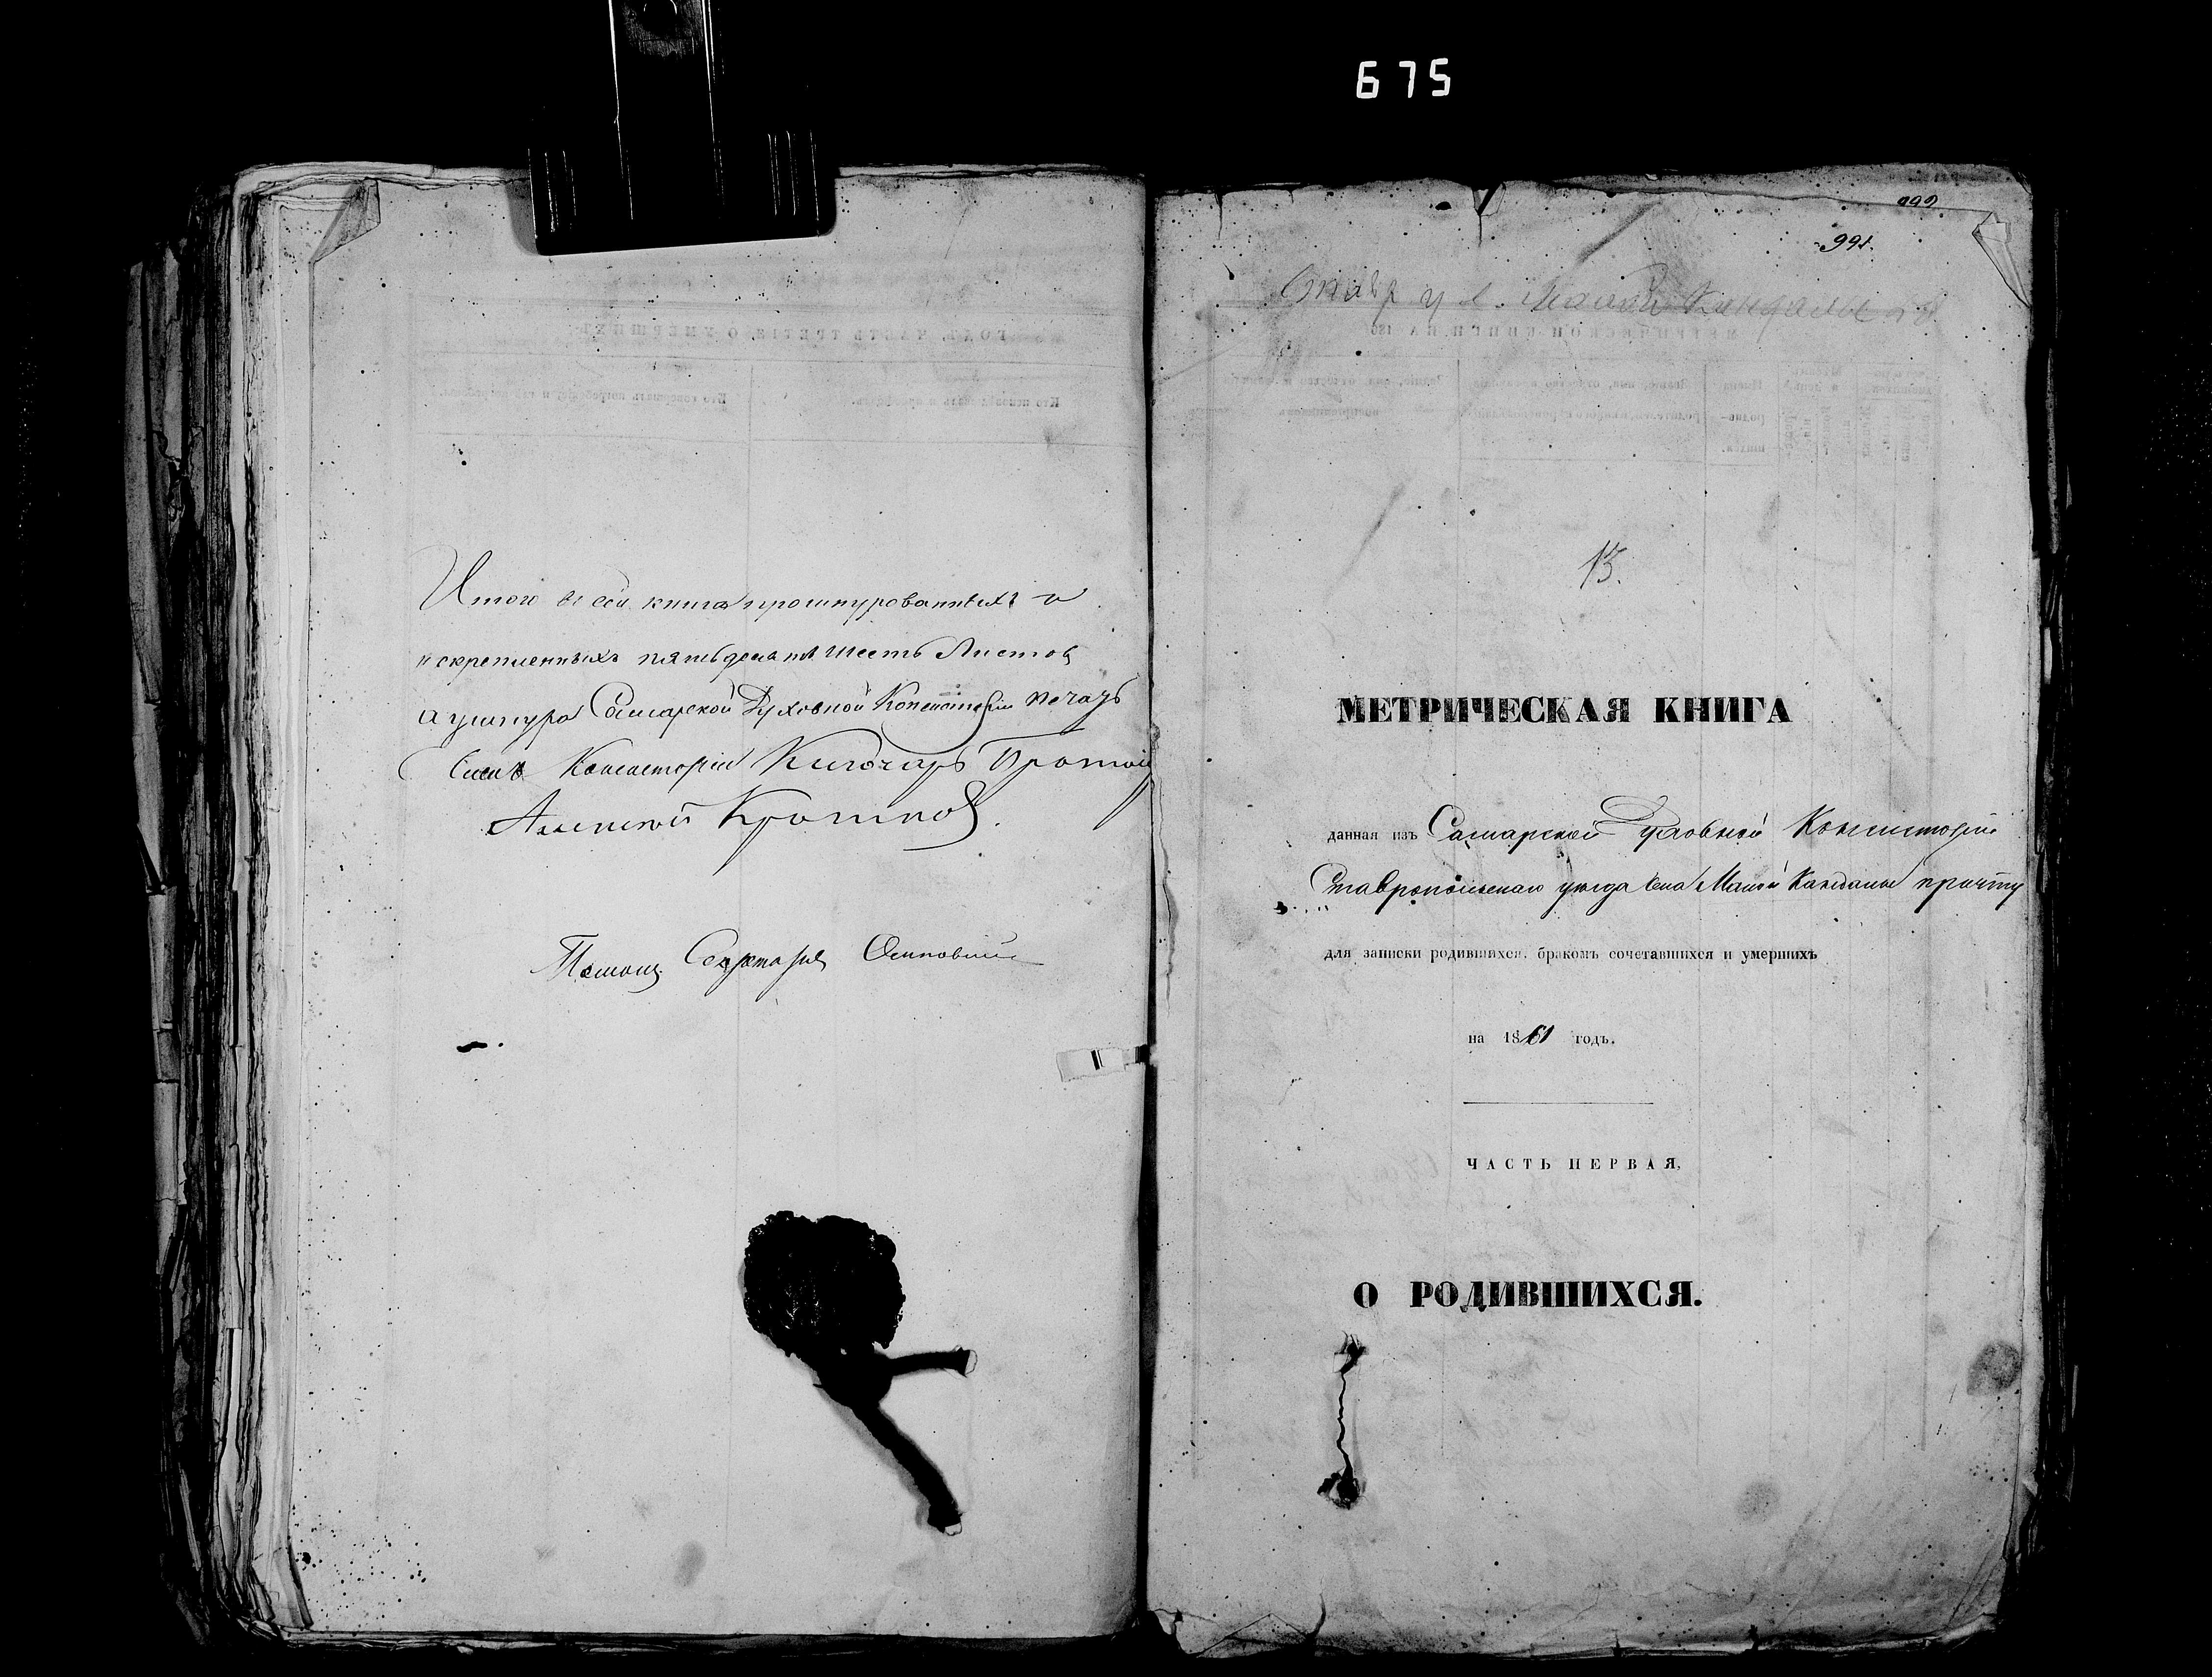 675
991.
Ставр. у. с. Малой Кандалы
13.
Итого въ сей книгѣ прошнурованныхъ и
скрепленныхъ пятьдесятъ шесть Листовъ
а у шнура Самарской Духовной Консисторіи печать
Членъ Консисторіи Ключарь Протоі
Алексей Кротков
Помощ. Секретаря Осиповъ
МЕТРИЧЕСКАЯ КНИГА
данная изъ Самарской Духовной Консисторіи
Ставропольскаго уѣзда села Малой Кандалы причту
для записки родившихся, бракомъ сочетавшихся и умершихъ
на 1861 годъ.
ЧАСТЬ ПЕРВАЯ,
О РОДИВШИХСЯ.